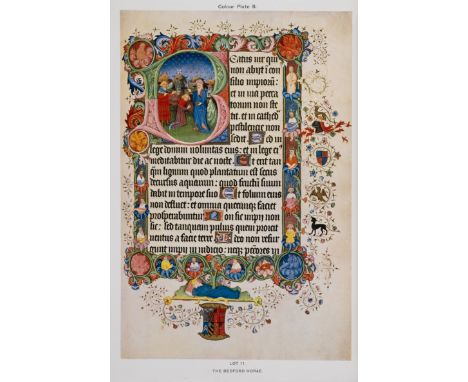 Colour Plate B.
Eatus uir qui
non abijt i con
silio impiorum:
et in uia pecca
torum non ste
tit. et in cathed
pestilencie non
sedit. Sed in
lege domini uoluntas eius: et in lege ei
meditabitur die ac nocte. Et erit tan
qm lignum quod plantatum est secus
decursus aquarum: quod fructu suum
dabit in tempore suo Et folium eius
non defluet: et omnia quecunque faciet
prosperabuntur. Non sic impij non
sic: sed tanquam puluis quem proicit
uentus a facie terre Ideo non resur
gunt impij in iudicio: neqz pctores in
LOT 11
THE BEDFORD HORAE.